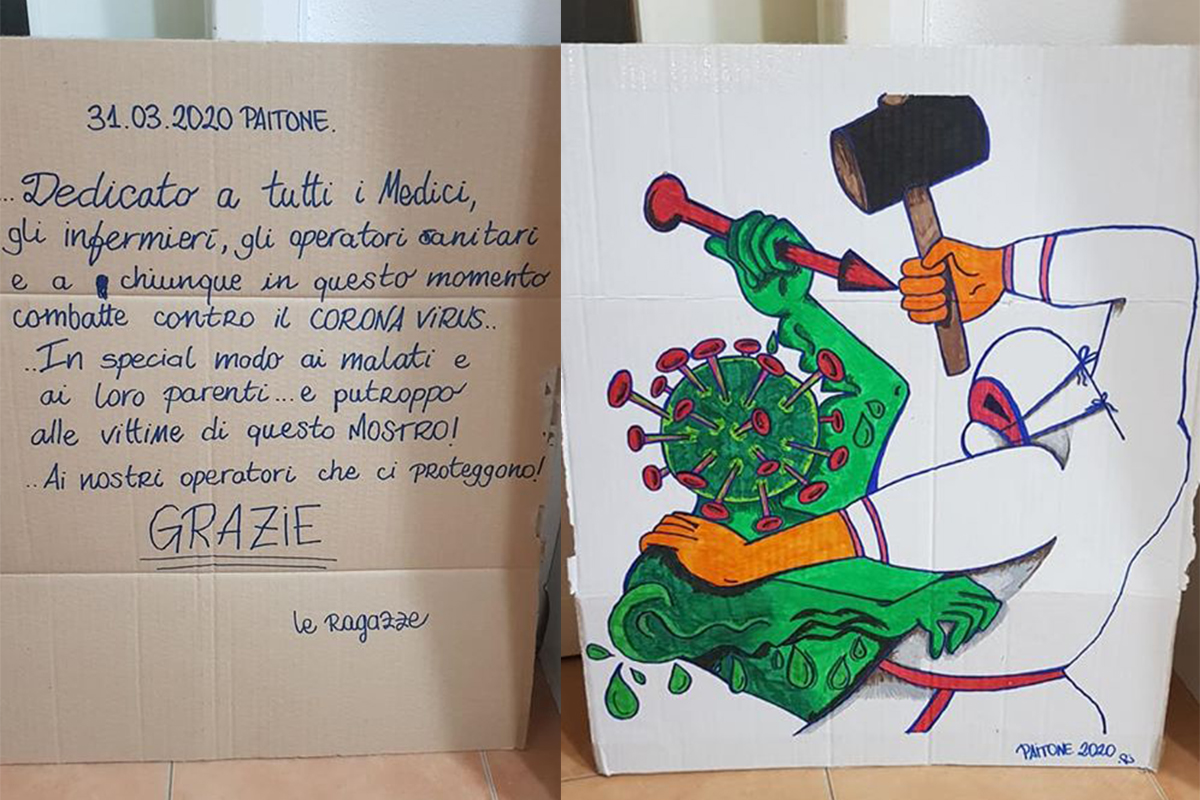 31.03.2020 PAITONE.
...Dedicato a tutti i Medici,
gli infermieri, gli operatori sanitari
e a chiunque in questo momento
combatte contro il CORONA ViRUS..
..In special modo ai malati e
ai loro parenti... e putroppo
alle vittime di questo MOSTRO!
..Ai nostri operatori che ci proteggono!
GRAZiE
le Ragazze
PAiTONE 2020